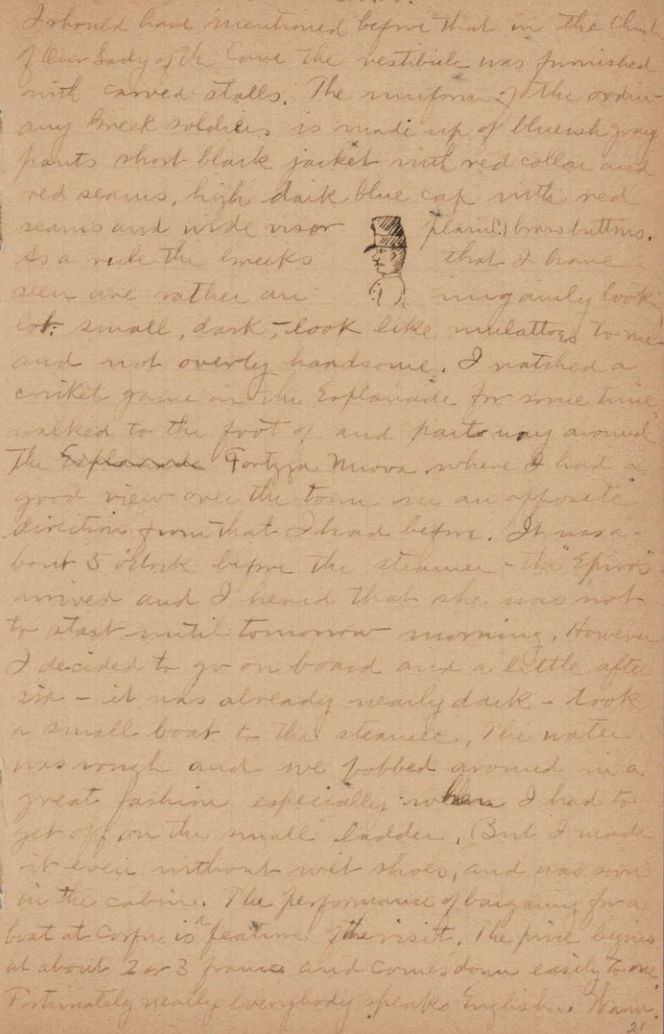 I should have mentioned before that in the Church
of Our Lady of the Cave the vestibule was furnished
with carved stalls. The uniform of the ordin-
ary Greek soldiers is made up of blueish gray
pants short black jacket with red collar and
red seams, high dark blue cap with red
seams and wide visor plain(?) brass buttons.
As a rule the Greeks that I have
seen are rather an ungainly look
lot, small, dark, - look like mulattoes to me -
and not overly handsome. I watched a
cricket game on the Esplanade for some time
walked to the foot of and part way around
the Esplanade Fortezza Nuova where I had a
good view over the town in an opposite
direction from that I had before. It was a-
bout 5 o'clock before the steamer - the "Epiros"
arrived and I heard that she was not
to start until tomorrow morning. However
I decided to go on board and a little after
six - it was already nearly dark - took
a small boat to the steamer. The water
was rough and we bobbed around in a
great fashion especially when I had to
get off on the small ladder. But I made
it even without wet shoes, and was soon
in the cabin. The performance of bargaing for a
boat at Corfu is a feature of the visit. The price begins
at about 2 or 3 francs and comes down easily to one
Fortunately nearly everybody speaks English.
21